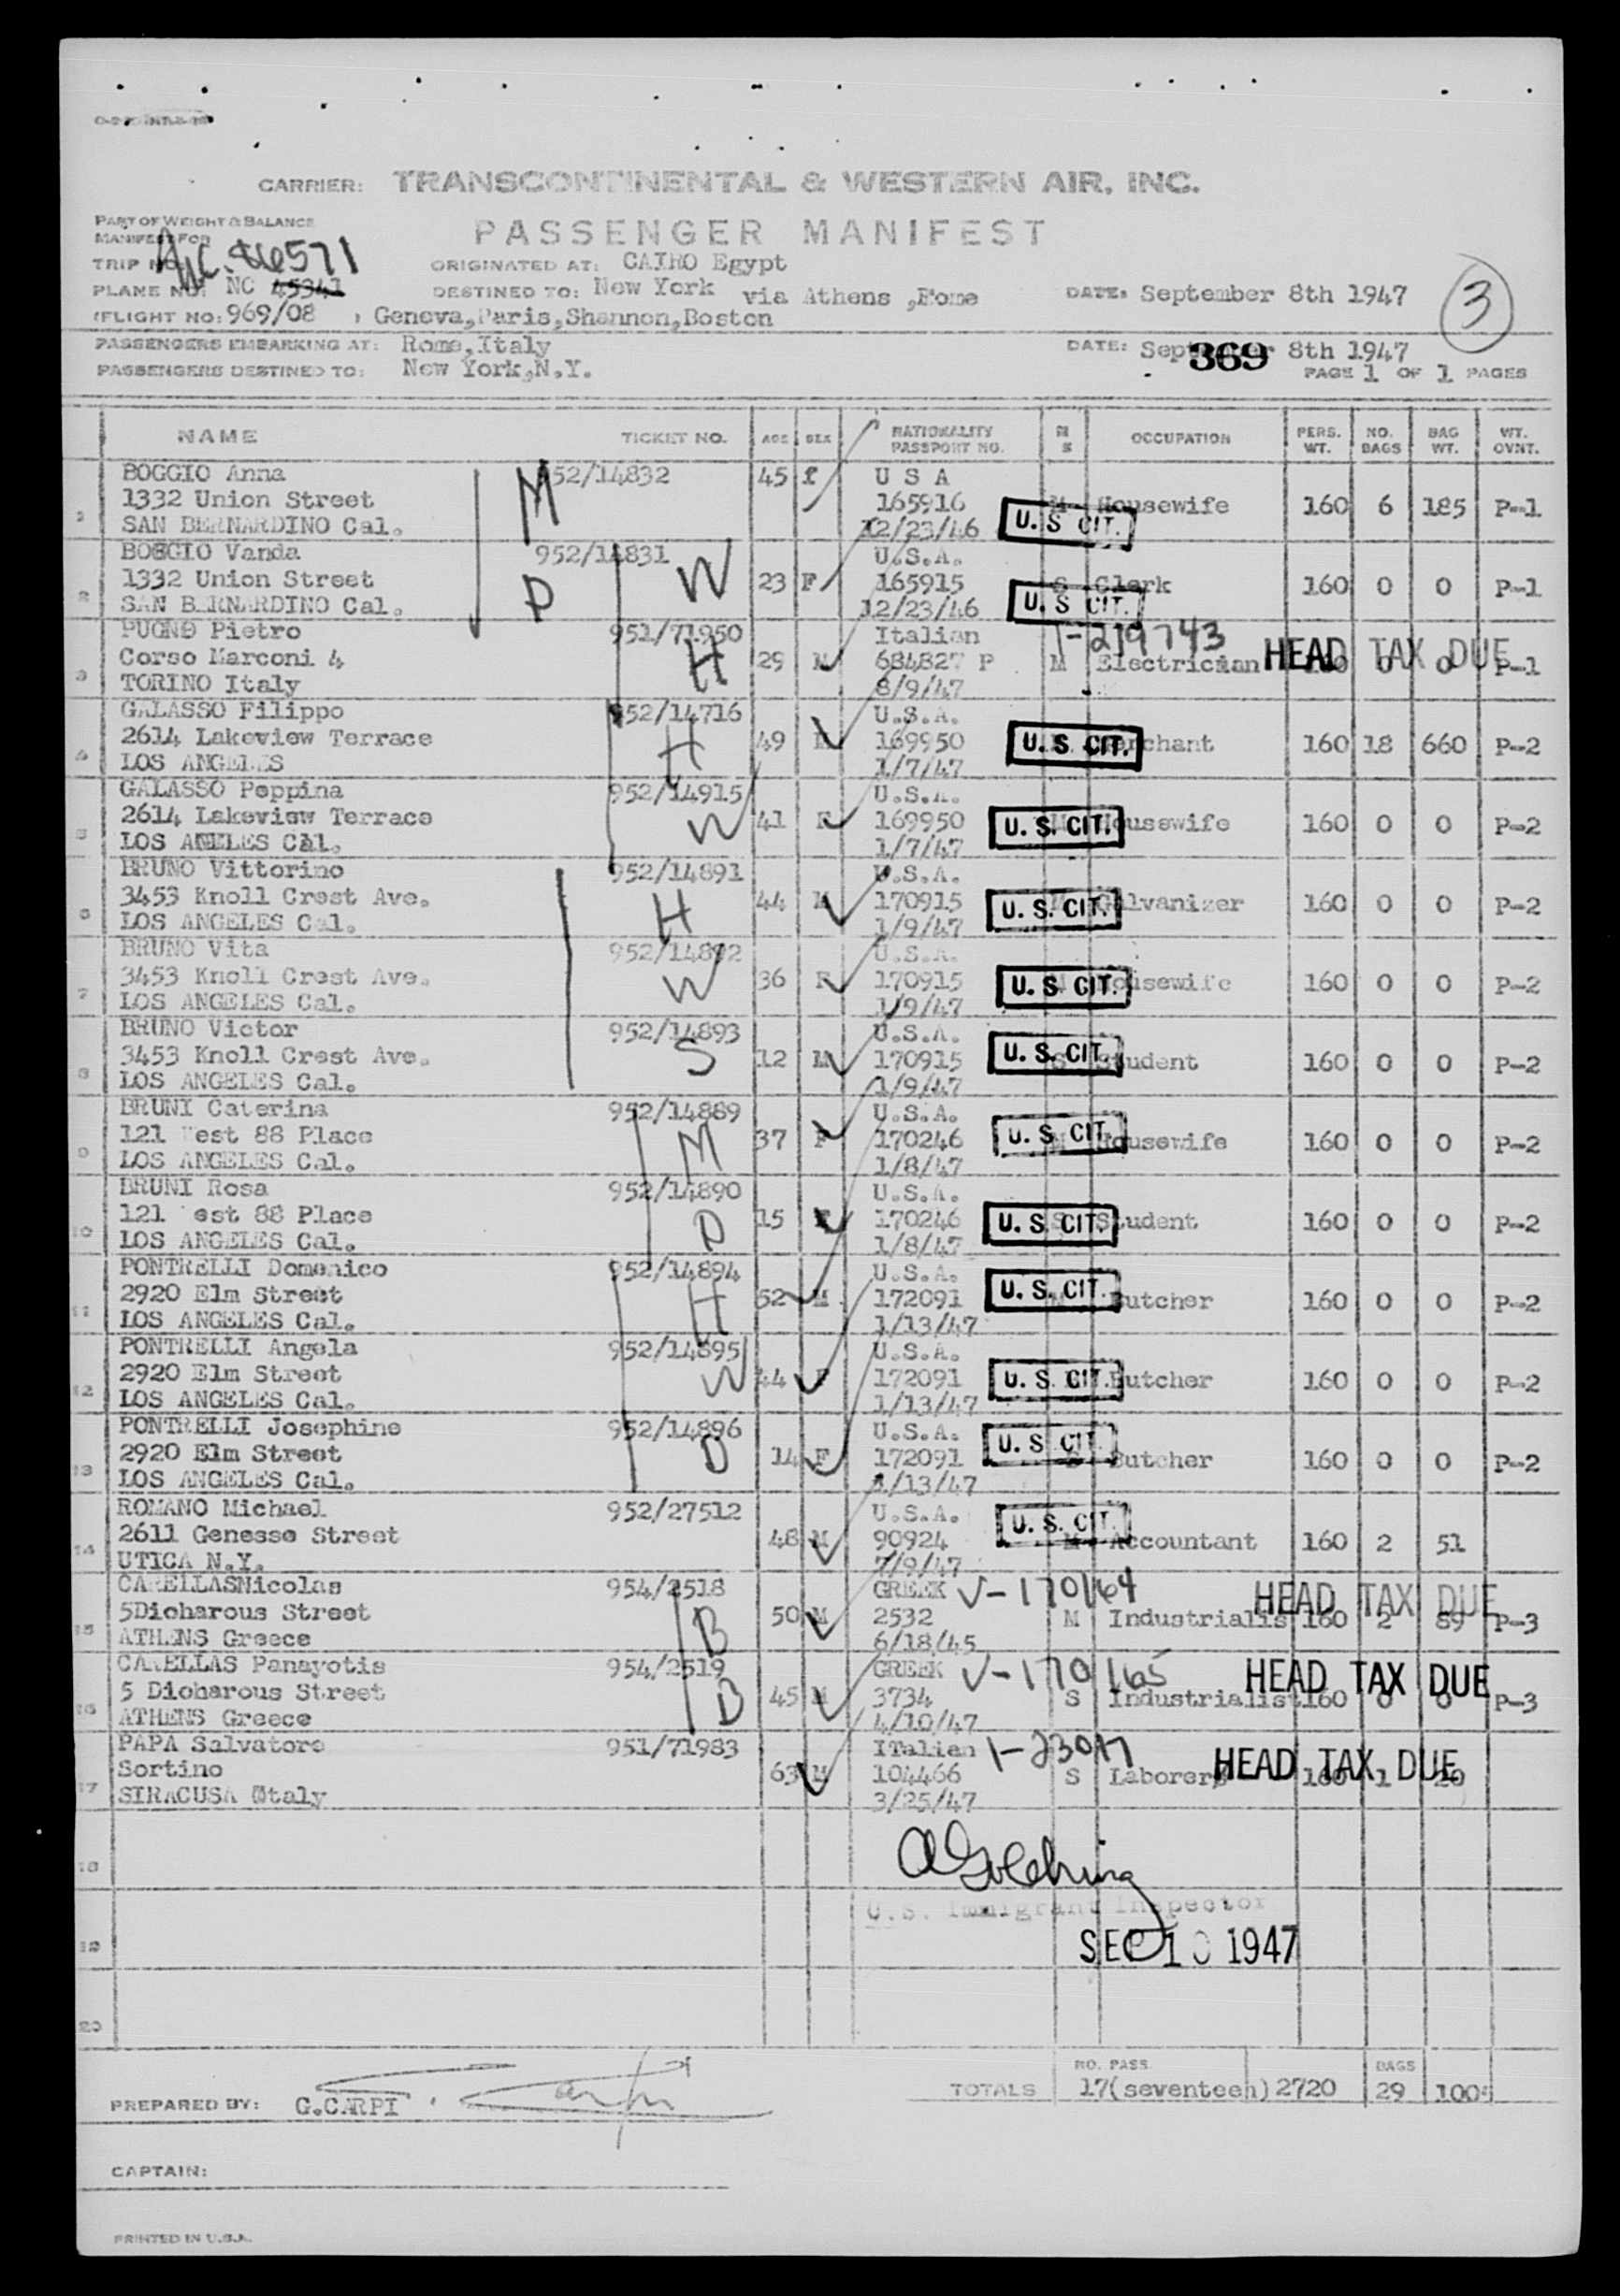 CARRIER: TRANSCONTINENTAL & WESTERN AIR, INC.
PART OF WEIGHT & BALANCE
MANIFEST FOR
PASSENGER MANIFEST
TRIP NO.
ORIGINATED AT: CAIRO Egypt
PLANE NO: NC 45341
DESTINED TO: New York via Athens ,Rome
DATE: September 8th 1947
3
(FLIGHT NO: 969/08 , Geneva,Paris,Shannon,Boston
PASSENGERS EMBARKING AT: Rome,Italy
DATE: September 8th 1947
369
PASSENGERS DESTINED TO: New York,N.Y.
PAGE 1 OF 1 PAGES
NAME TICKET NO. AGE SEX NATIONALITY PASSPORT NO. M S OCCUPATION PERS. WT. NO. BAGS BAG WT. WT. OVNT.
BOGGIO Anna 952/14832 45 f U S A
M
1332 Union Street 165916 M Housewife 160 6 185 P-1
1 SAN BERNARDINO Cal. 12/23/46 U.S CIT.
BOGGIO Vanda 952/14831 U.S.A.
D W
1332 Union Street 23 F 165915 S Clerk 160 0 0 P-1
2 SAN BERNARDINO Cal. 12/23/46 U.S CIT.
PUGNO Pietro 951/71950 Italian 1-219743
H
Corso Marconi 4 29 M 684827 P M Electrician 160 0 0 P-1
HEAD TAX DUE
3 TORINO Italy 8/9/47
GALASSO Filippo 952/14716 U.S.A.
H
2614 Lakeview Terrace 49 M 169950 U.S. CIT. Merchant 160 18 660 P-2
4 LOS ANGELES 1/7/47
GALASSO Peppina 952/14915 U.S.A.
W
2614 Lakeview Terrace 41 F 169950 U.S. CIT. Housewife 160 0 0 P-2
5 LOS ANGELES Cal. 1/7/47
BRUNO Vittorino 952/14891 U.S.A.
H
3453 Knoll Crest Ave. 44 M 170915 U.S. CIT. Galvanizer 160 0 0 P-2
6 LOS ANGELES Cal. 1/9/47
BRUNO Vita 952/14892 U.S.A.
W
3453 Knoll Crest Ave. 36 F 170915 U.S. CIT. Housewife 160 0 0 P-2
7 LOS ANGELES Cal. 1/9/47
BRUNO Victor 952/14893 U.S.A.
S
3453 Knoll Crest Ave. 12 M 170915 U.S. CIT. S Student 160 0 0 P-2
8 LOS ANGELES Cal. 1/9/47
BRUNI Caterina 952/14889 U.S.A.
M
121 West 88 Place 37 F 170246 U.S CIT. Housewife 160 0 0 P-2
9 LOS ANGELES Cal. 1/8/47
BRUNI Rosa 952/14890 U.S.A.
D
121 est 88 Place 15 F 170246 U.S. CIT. Student 160 0 0 P-2
10 LOS ANGELES Cal. 1/8/47
PONTRELLI Domenico 952/14894 U.S.A.
H
2920 Elm Street 52 M 172091 U.S. CIT. Butcher 160 0 0 P-2
11 LOS ANGELES Cal. 1/13/47
PONTRELLI Angela 952/14895 U.S.A.
W
2920 Elm Street 44 F 172091 U.S. CIT. Butcher 160 0 0 P-2
12 LOS ANGELES Cal. 1/13/47
PONTRELLI Josephine 952/14896 U.S.A.
D
2920 Elm Street 14 F 172091 U.S CIT. Butcher 160 0 0 P-2
13 LOS ANGELES Cal. 1/13/47
ROMANO Michael 952/27512 U.S.A.
2611 Genesse Street 48 M 90924 U.S. CIT. M Accountant 160 2 51
14 UTICA N.Y. 7/9/47
CANELLASNicolas 954/2518 GREEK V-170164
B
5Dioharous Street 50 M 2532 M Industrialist 160 2 89 P-3
HEAD TAX DUE
15 ATHENS Greece 6/18/45
CANELLAS Panayotis 954/2519 GREEK V-170165
B
5 Dioharous Street 45 M 3734 S Industrialist 160 0 0 P-3
HEAD TAX DUE
16 ATHENS Greece 4/10/47
PAPA Salvatore 951/71983 ITalian
Sortino 63 M 104466 S Laborer 160 1 20
HEAD TAX DUE
17 SIRACUSA Italy 3/25/47
18
U.S. Immigrant Inspector
19
SEP 10 1947
20
NO. PASS. BAGS
TOTALS 17(seventeen) 2720 29 1005
PREPARED BY: G.CARPI
CAPTAIN:
PRINTED IN U.S.A.